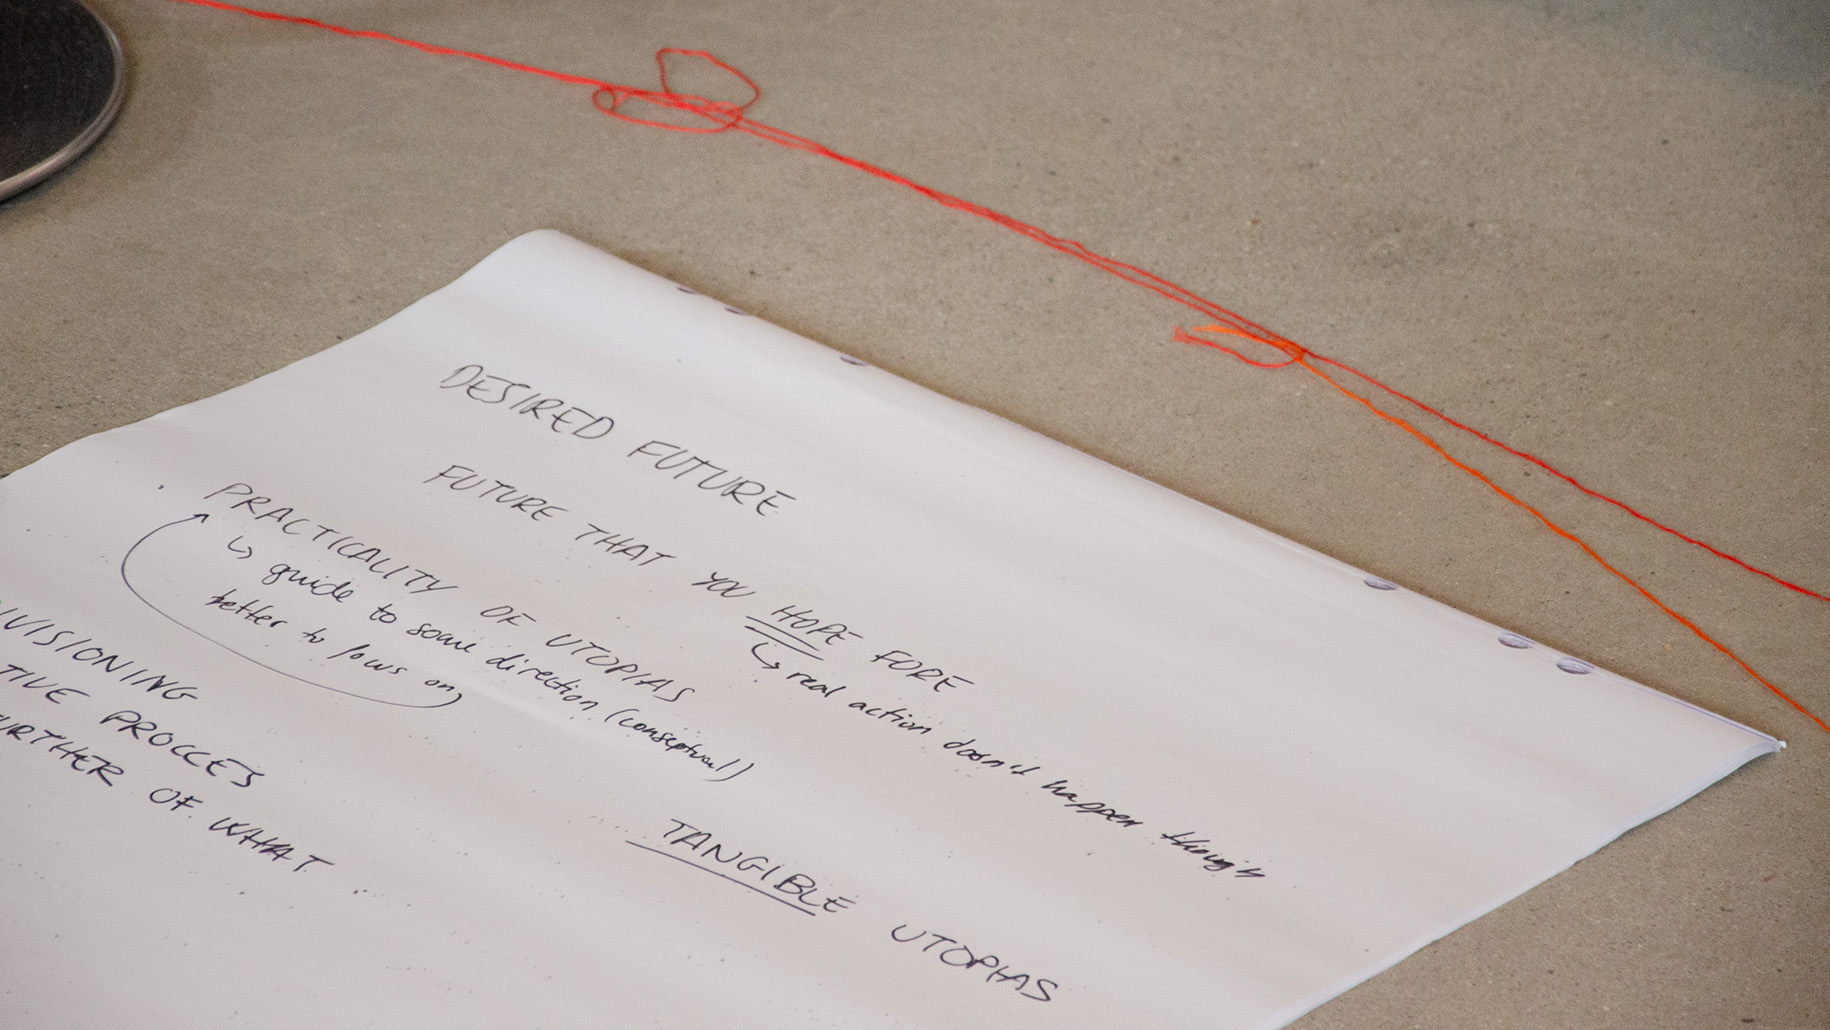 DESIRED FUTURE
FUTURE THAT YOU HOPE FORE
↳ real action doesn't happen though
PRACTICALITY OF UTOPIAS
↳ guide to some direction (conseptual)
better to focus on
VISIONING
TIVE PROCCES
URTHER OF WHAT
TANGIBLE UTOPIAS